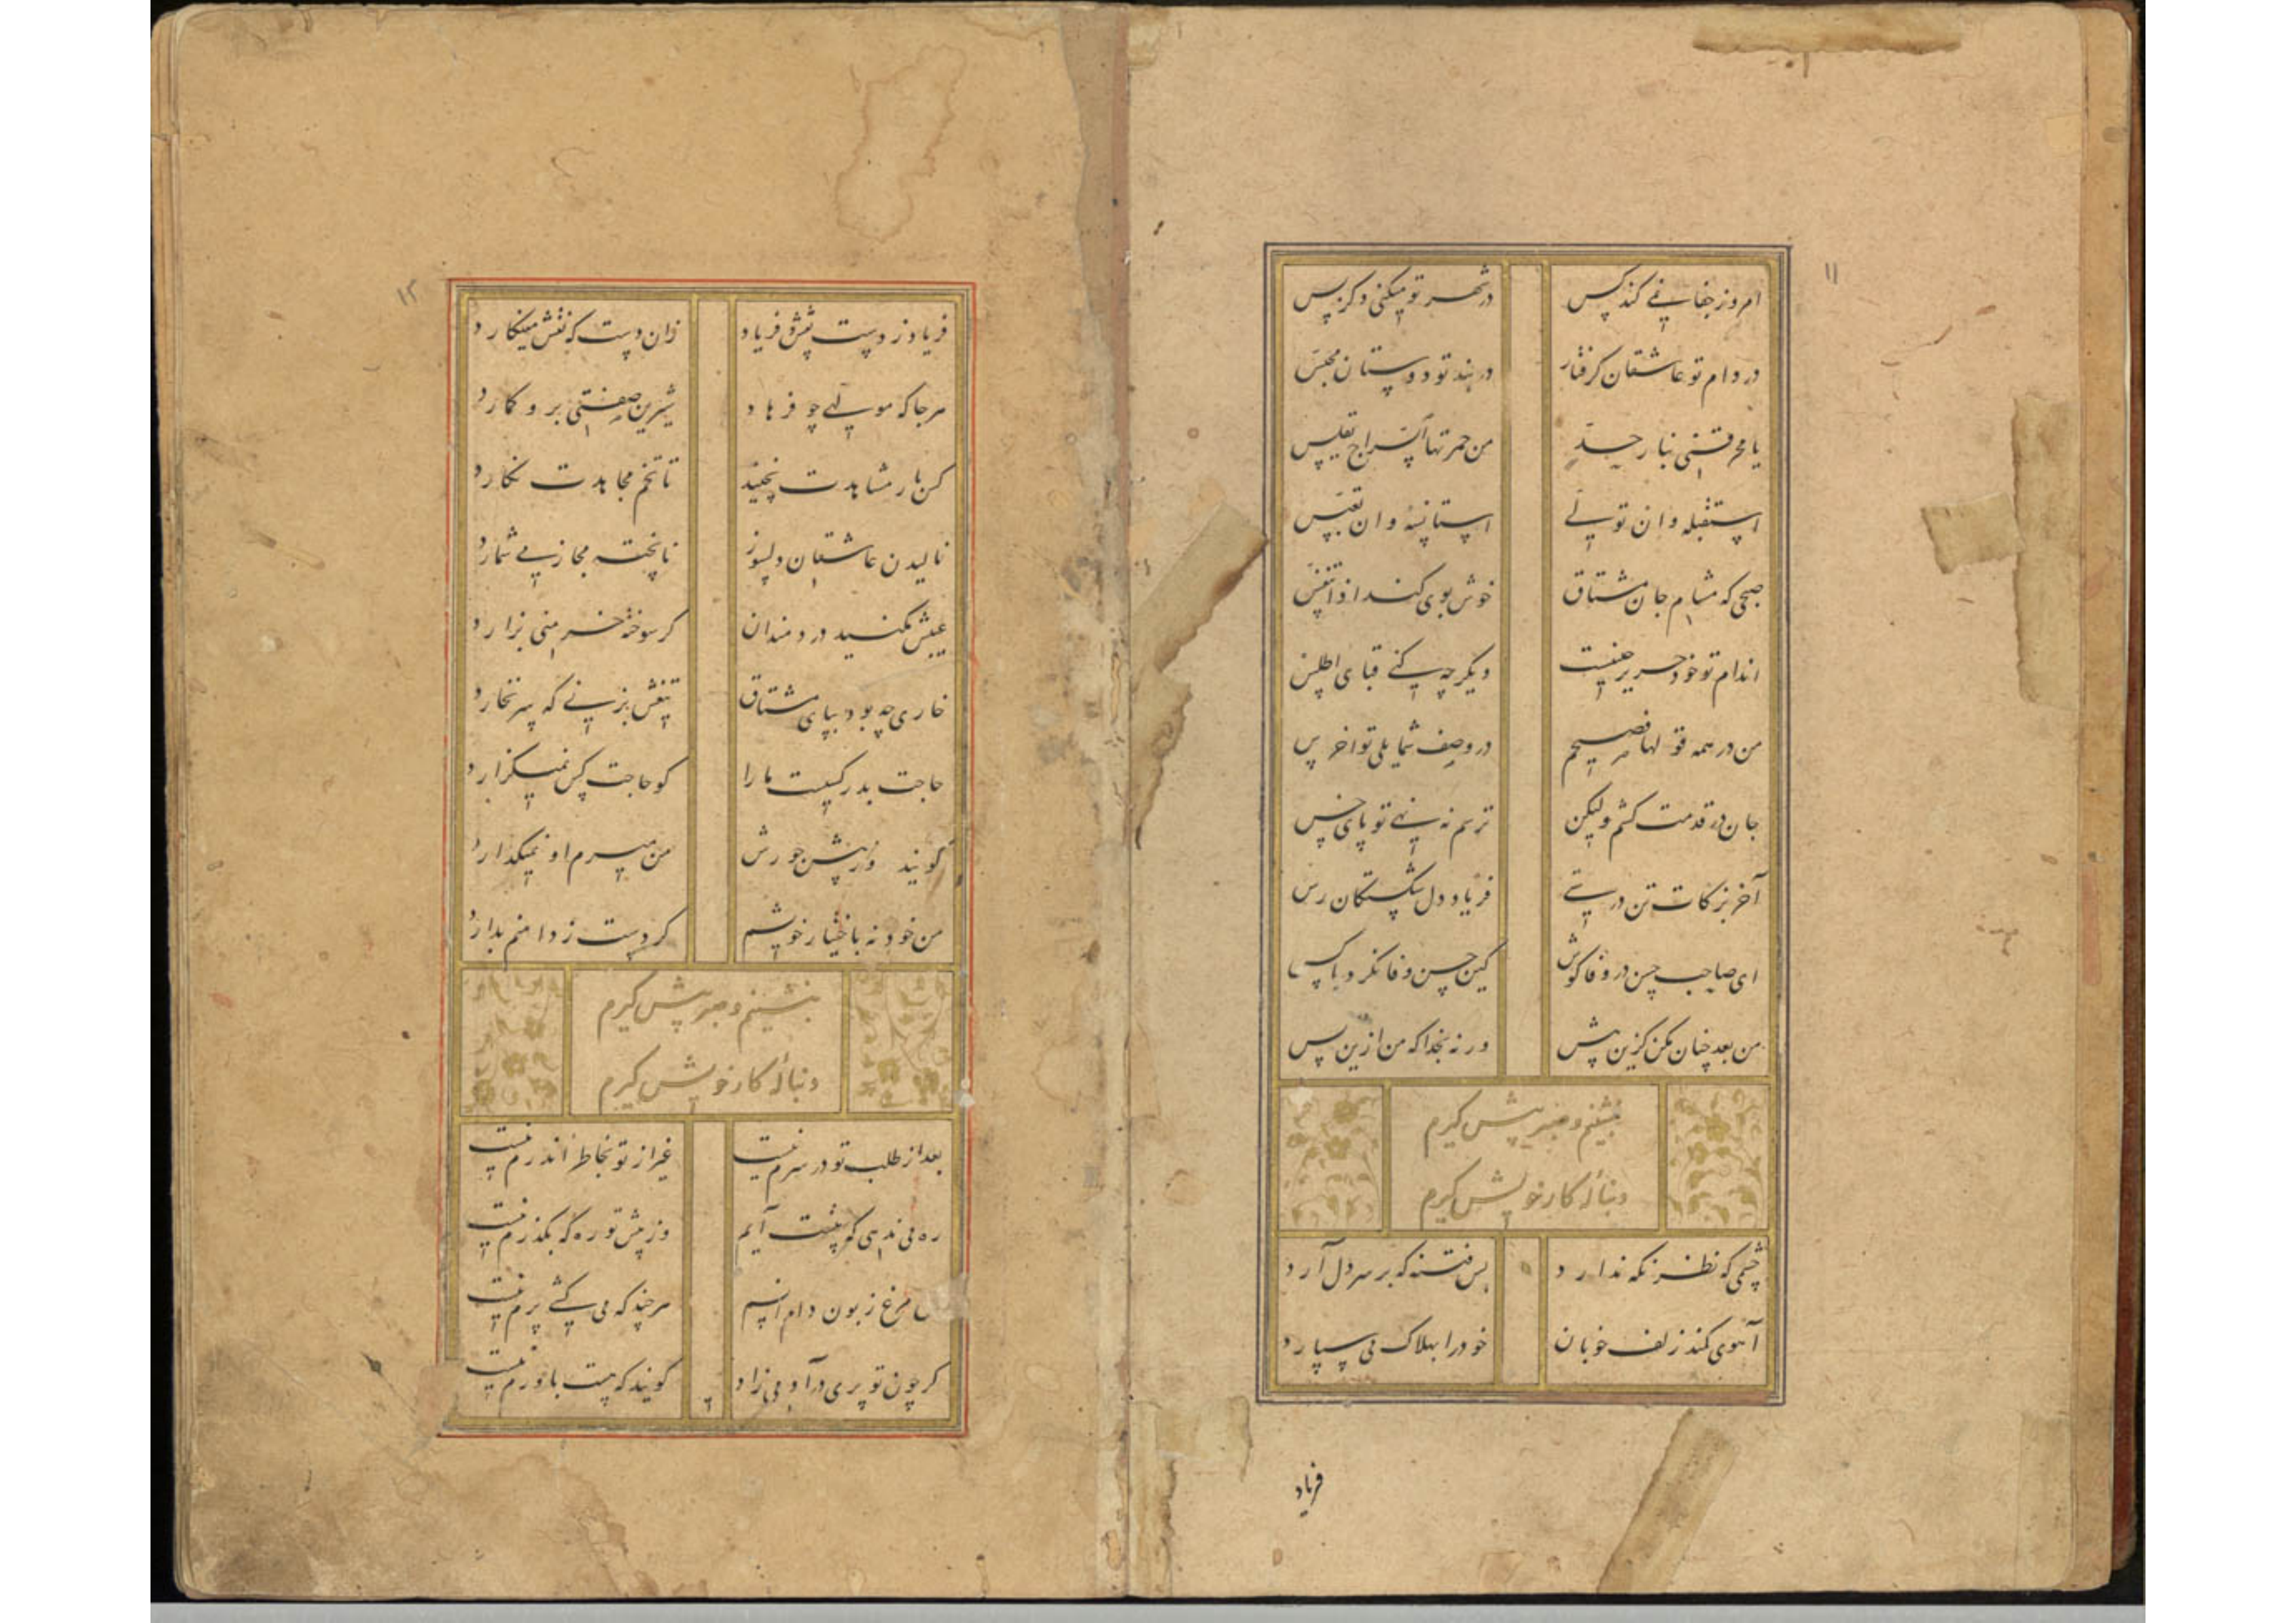 ۱۱
امروز جفا نمی کند کس در شهر تو میکنی و کر بس
در دام تو عاشقان کرفتار در بند تو دوستان محبس
یا محرقتی بنار خد من جمرتها السراج تقبس
استقبله وان تولی استانسه وان تعبس
صبحی که مشام جان مشتاق خوش بوی کند اذا تنفس
اندام تو خود حریر چینست دیکر چه کنی قبای اطلس
من در همه قولها فصیحم در وصف شمایل تو اخرس
جان در قدمت کنم ولیکن ترسم نه نهی تو پای خس
آخر بزکات تن درستی فریاد دل شکستکان رس
ای صاحب حسن در وفا کوش کین حسن وفا نکرد با کس
من بعد چنان مکن کزین پیش ورنه بخدا که من ازین پس
بنشینم و صبر پیش کیرم
دنبالهٔ کار خویش کیرم
چشمی که نظر نکه ندارد بس فتنه که بر سر دل آرد
آهوی کمند زلف خوبان خود را بهلاک می سپارد
فریاد
۱۲
فریاد ز دست نقش فریاد زان دست که نقش مینکارد
هرجا که مولهی چو فرهاد شیرین صفتی برو کمارد
کس بار مشاهدت نچیند تا تخم مجاهدت نکارد
نالیدن عاشقان دلسوز ناپخته مجاز می شمارد
عیبش مکنید دردمندان کر سوخته خرمنی بزارد
خاری چه بود بپای مشتاق تیغش بزنی که سر نخارد
حاجت بدر کسیست ما را کو حاجت کس نمیکزارد
کویند ز پیش جورش من میرم او نمیکذارد
من خود نه باختیار خویشم کر دست ز دامنم بدارد
بنشینم و صبر پیش کیرم
دنبالهٔ کار خویش کیرم
بعد از طلب تو در سرم نیست غیر از تو بخاطر اندرم نیست
ره می ندهی که پیشت آیم وز پیش تو ره که بکذرم نیست
مرغ زبون دام انسم هرچند که می کشی پرم نیست
کر چون تو پری در آدمی زاد کویند که هست باورم نیست